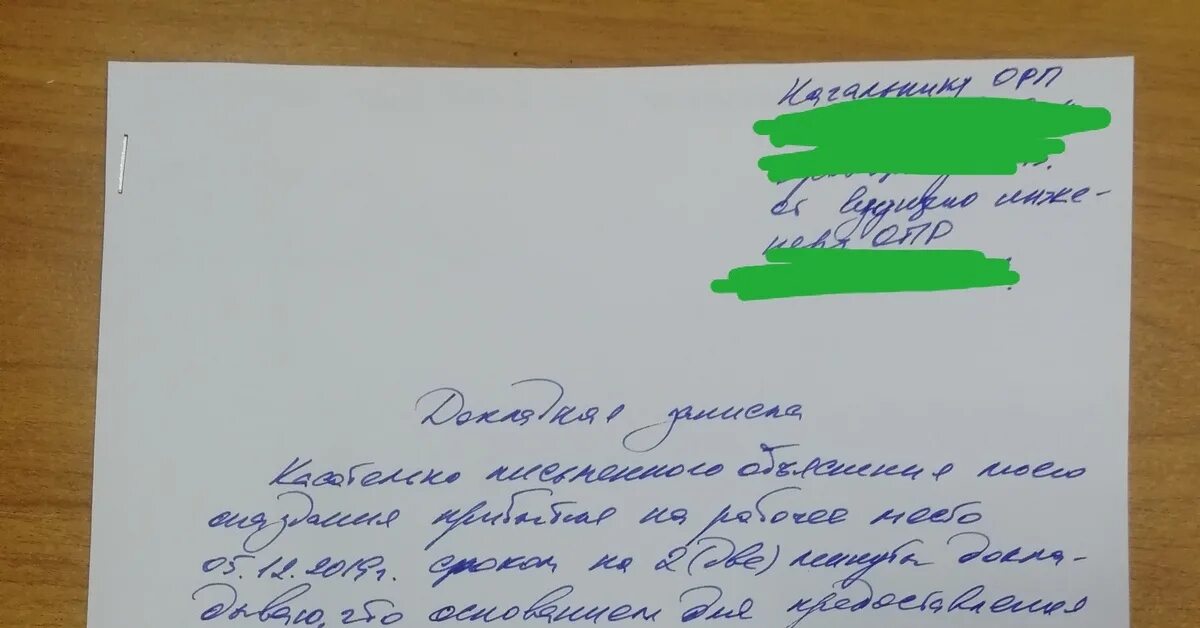 Начальнику ОРП
от ведущего инже-
нера ОПР
Докладная записка
Касательно письменного объяснения моего
опоздания прибытия на рабочее место
05.12.2019г. сроком на 2 (две) минуты докла-
дываю, что основанием для предоставления